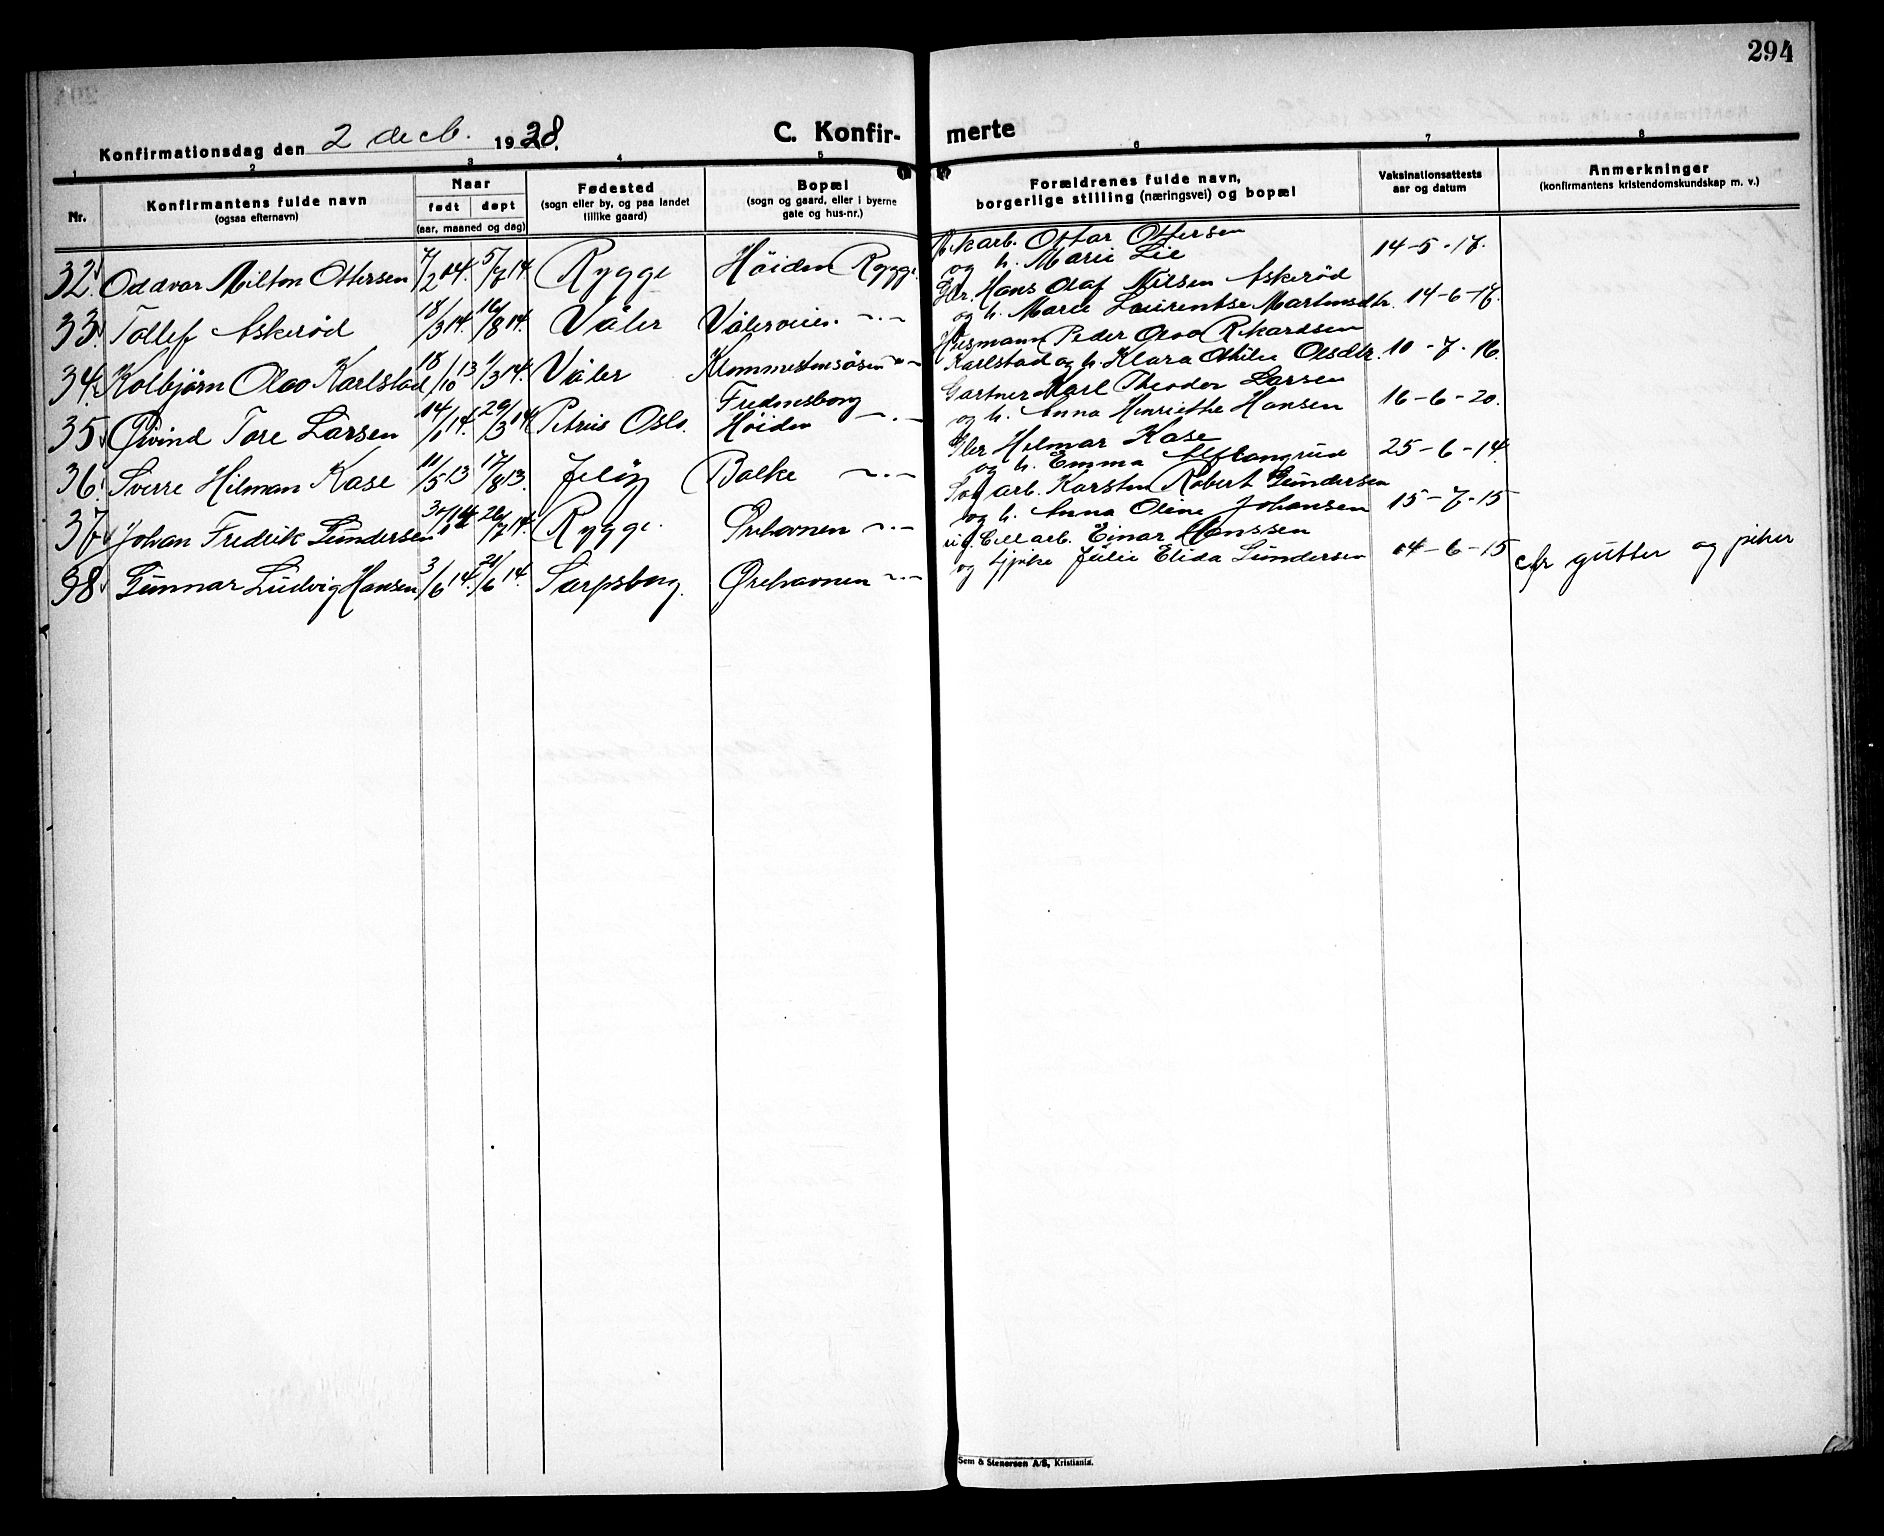 294
Konfirmationsdag den 2 decb. 1928.
C. Konfir-
merte
1 2 3 4 5 6 7 8
Nr.
Konfirmantens fulde navn
(ogsaa efternavn)
Naar
født døpt
(aar, maaned og dag)
Fødested
(sogn eller by, og paa landet
tillike gaard)
Bopæl
(sogn og gaard, eller i byerne
gate og hus-nr.)
Forældrenes fulde navn,
borgerlige stilling (næringsvei) og bopæl
Vaksinationsattests
aar og datum
Anmerkninger
(konfirmantens kristendomskundskap m. v.)
32. Oddvar Milton Ottersen 7/2 14. 5/7 14. Rygge Høiden Rygge. arb. Ottar Ottersen
og h. Marie Lie 14-5-17.
33. Tollef Askerød 18/3 14. 16/8 14. Våler Vålerveien -"- Gbr. Hans Olaf Nilsen Askerød
og h. Marie Laurentse Martinsdtr. 14-6-17.
34. Kolbjørn Olav Karlstad 18/10 13 1/3 14. Våler -"- Husmann Peder Olav Rikardsen
Karlstad og h. Klara Othilie Olsdtr. 10-7-16.
35. Øivind Tore Larsen 14/1 14. 29/3 14. Petrus Oslo. Fredensborg
Høiden -"- Gartner Karl Theodor Larsen
og h. Anna Henriette Hansen 16-6-20.
36. Sverre Hilman Kase 11/5 13 17/8 13. Jeløy Balke -"- Gbr Hilmar Kase
og h. Emma 25-6-14.
37. Johan Fredrik Gundersen 26/7 14. Rygge. Ørehavnen -"- arb. Karsten Robert Gundersen
og h. Anna Oline Johansen 15-7-15
38. Gunnar Ludvig Hansen 3/6 14. 21/6 14. Sarpsborg. Ørehavnen -"- ug. Cell arb. Einar Hanssen
og tjpike Julie Elida Gundersen 14-6-15 cfr gutter og piker
Sem & Stenersen A/S, Kristiania.